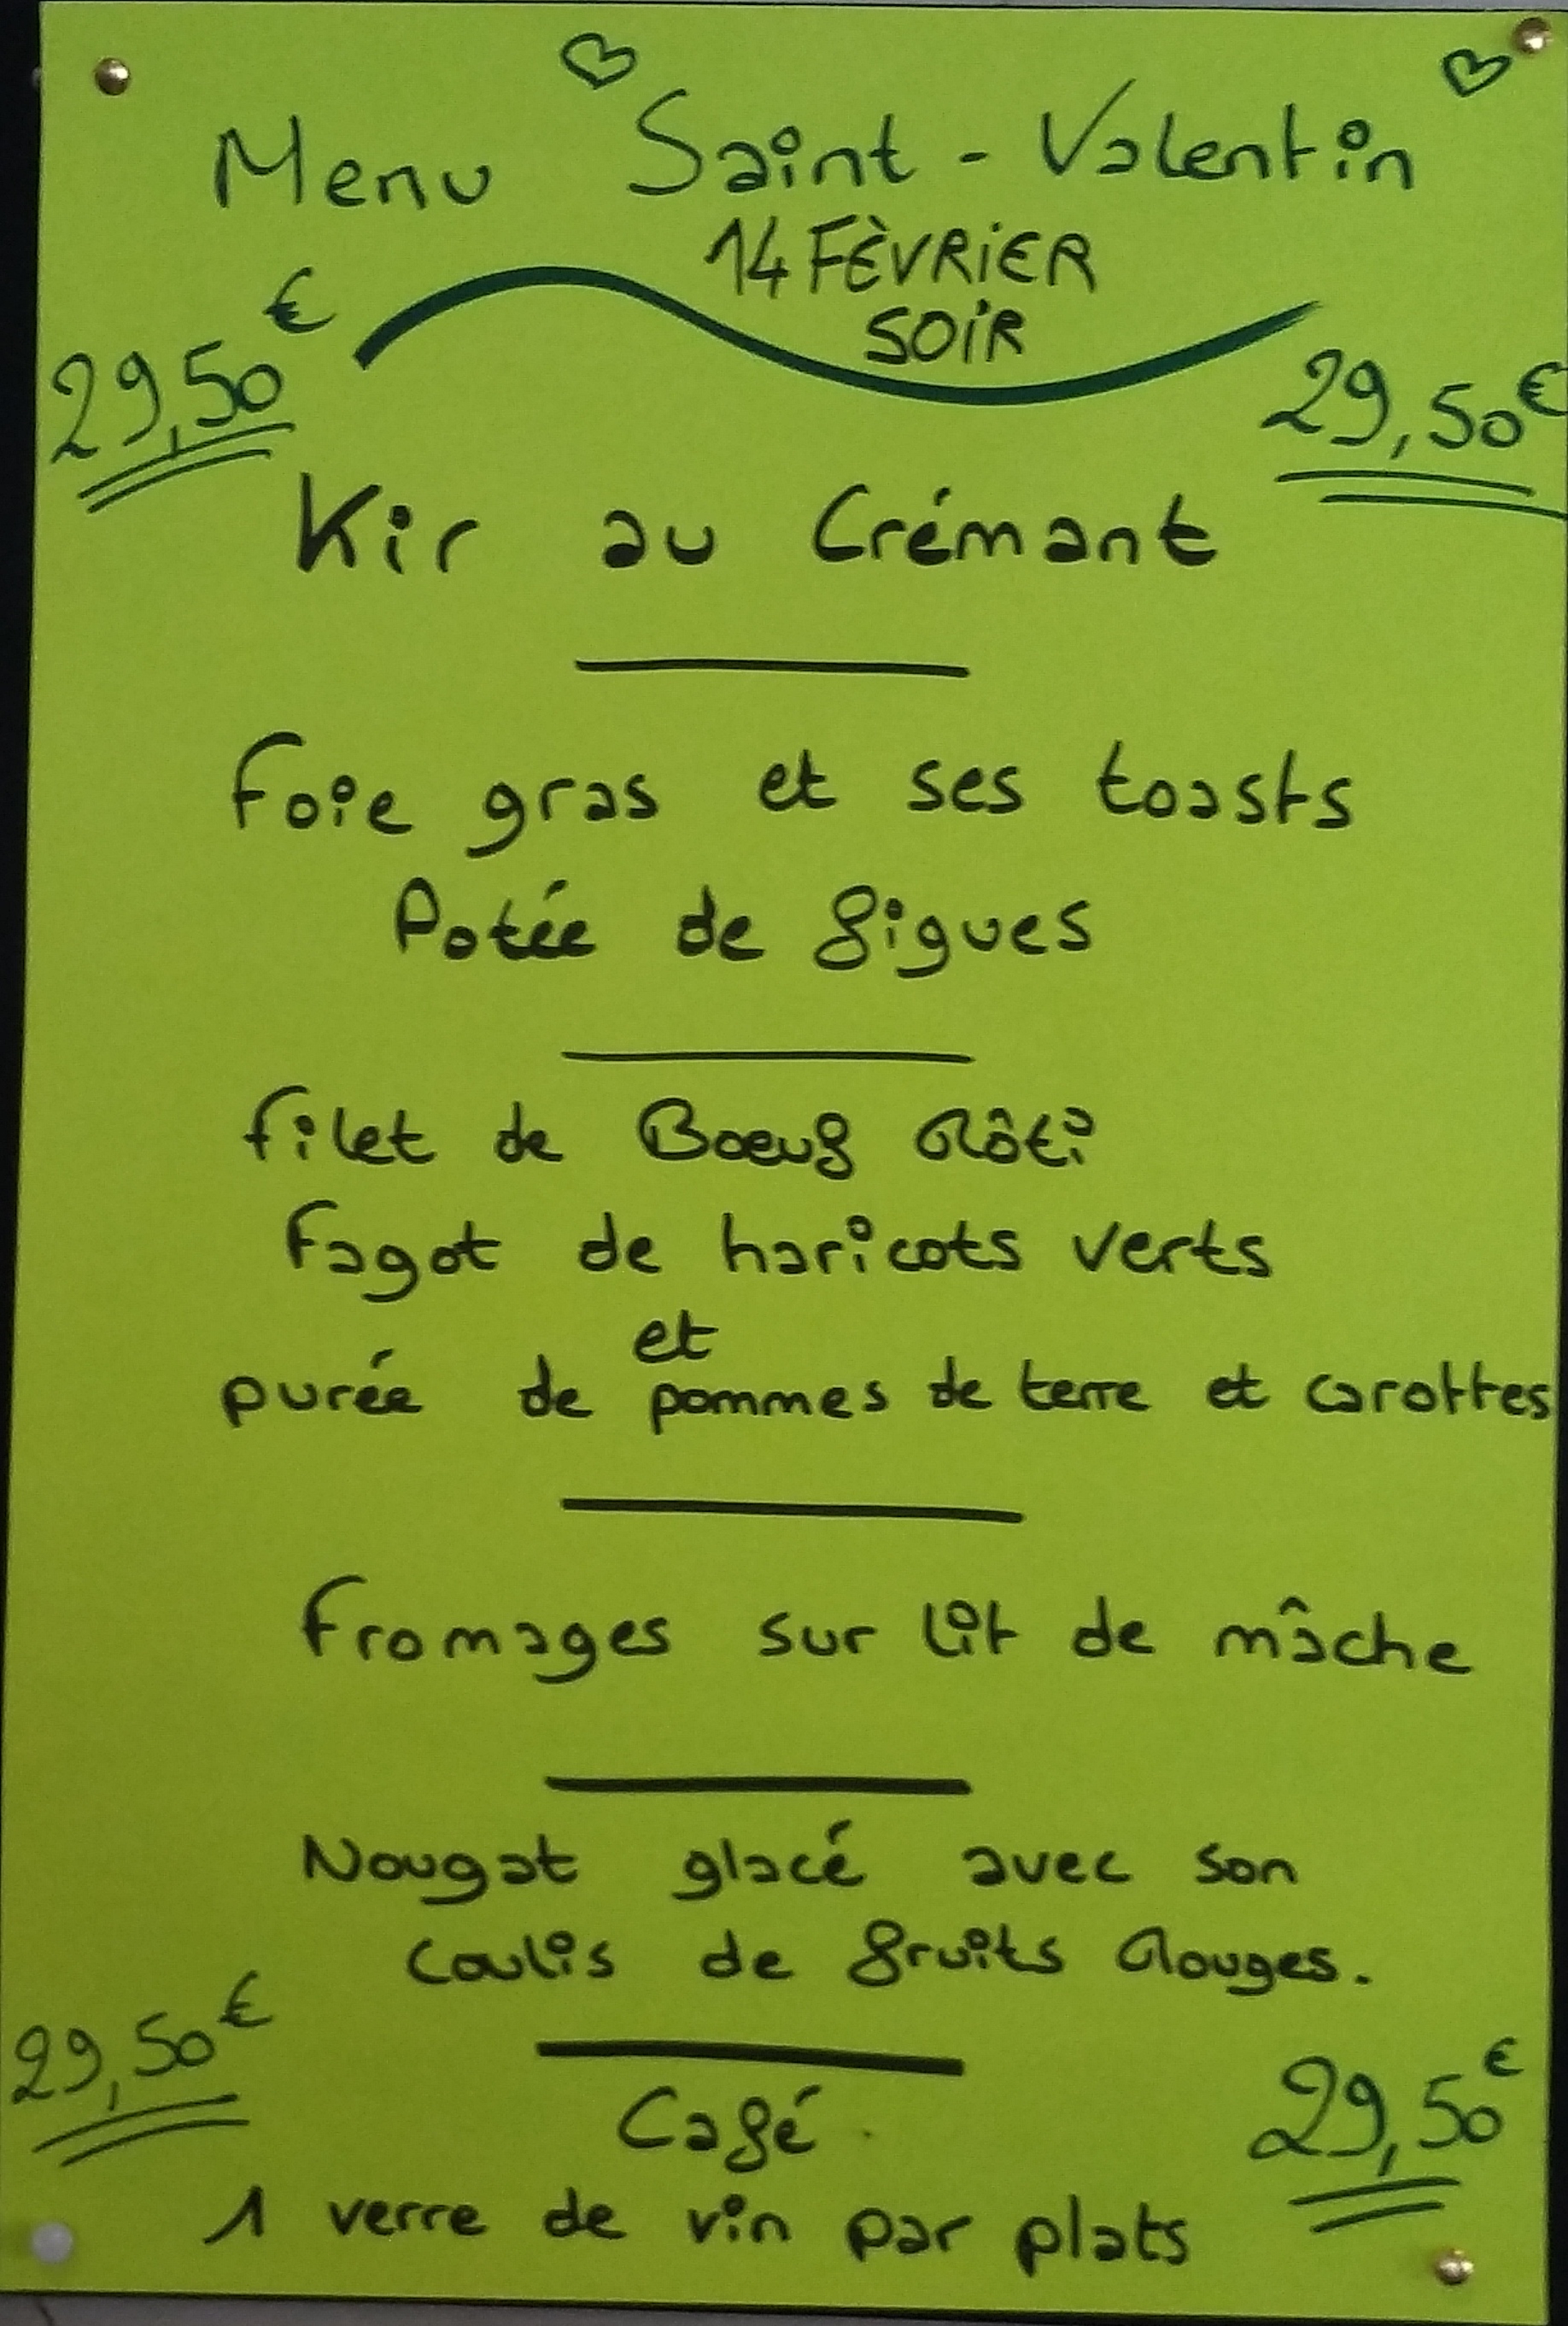 Menu Saint-Valentin
14 FÈVRIER
SOIR
29,50€
29,50€
Kir au Crémant
Foie gras et ses toasts
Potée de figues
Filet de Boeuf Rôti
Fagot de haricots verts
et
purée de pommes de terre et carottes
Fromages sur lit de mâche
Nougat glacé avec son
coulis de fruits Rouges.
29,50€
29,50€
Café.
1 verre de vin par plats